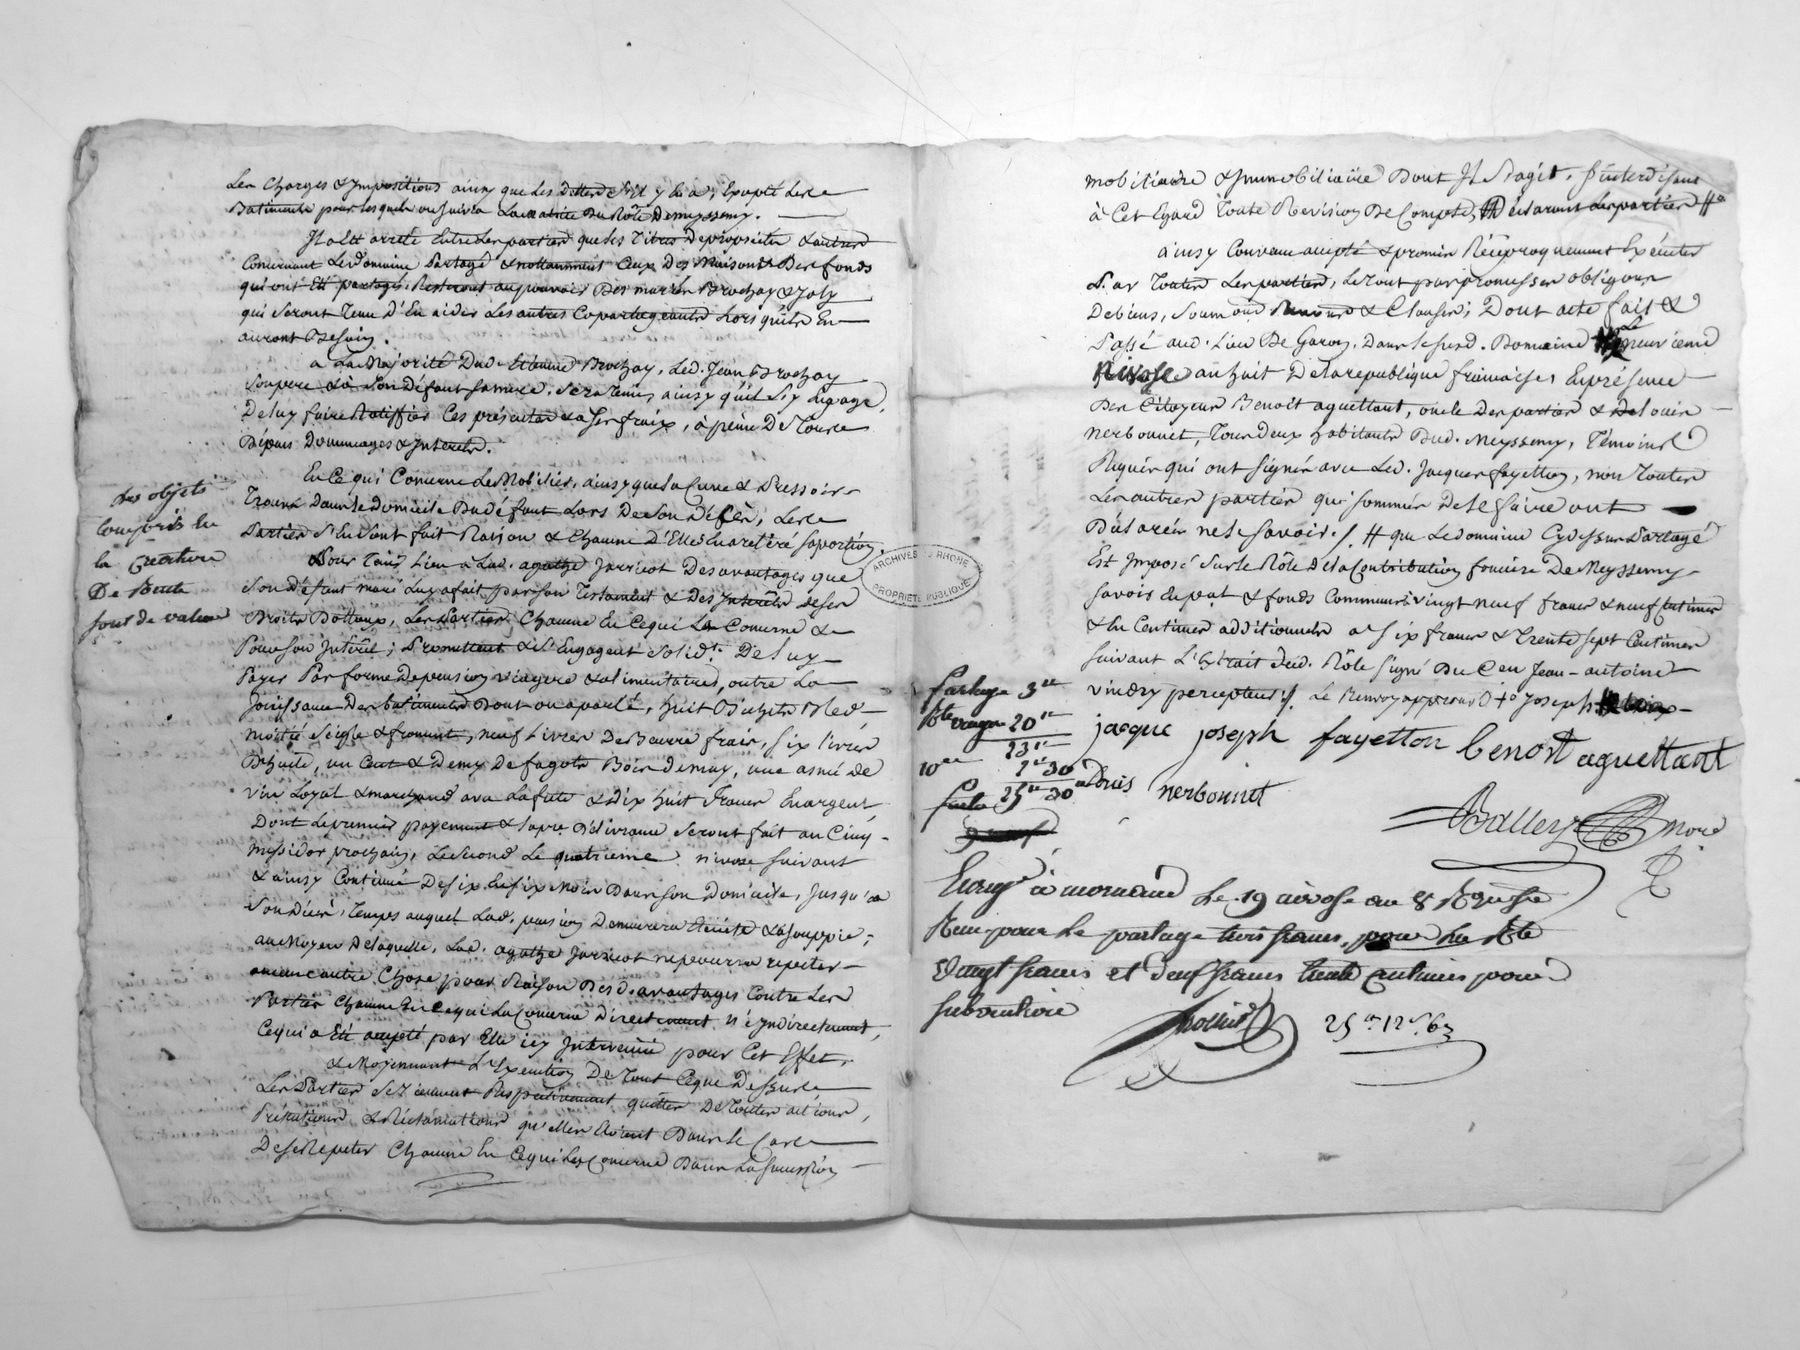 Les Charges & Impositions ainsy que les Dettes s'il y en a, Excepté des
Batiments pour lesquels on suivra la matrice du Rôle De messimy.
Il a Eté arreté Entre les parties que les Titres De propriétés & autres
Concernant le Domaine Partagé & nottamment Ceux Des Maisons & Des fonds
qui ont Eté partagés Resteront au pouvoir Des mariés Brochay & Joly
qui Seront Tenu D'En aider Les autres Copartageants Lorsqu'ils En
auront Besoin.
a La Majorité Dud. Etienne Brochay, Led. Jean Brochay
Son pere & à Son Défaut sa mere, Sera Tenu, ainsy qu'il S'y Engage,
De luy faire Ratiffier Ces présentes à Ses fraix, à peine De Tous
Dépens Dommages & Interets.
En Ce qui Concerne Le Mobilier, ainsy que la Cuve & Pressoir
Trouvé Dans le Domicile Du défunt Lors De Son décès, Les
Parties S'En Sont fait Raison & Chacune D'Elles En a retiré sa portion,
Pour Tenir Lieu a Lad. agathe Jarricot Des avantages que
Son défunt mari Luy a fait par Son Testament & Des Interêts de Ses
Droits Dottaux, Les Parties, Chacune En Ce qui La Concerne &
Pour Son Intérêt, Promettent & S'Engagent Solid.t De Luy
Payer Par forme De pension viagere & alimentaires, outre La
Joüissance Des batiments Dont on a parlé, huit Bichets Bled
moitié Seigle & froment, neuf Livres De Beurre frais, Six livres
D'huile, un Cent & Demy De fagots Bois De may, une anée de
vin Loyal & marchand avec La futé & Dix huit francs En argent,
Dont Le premier payement & Lapre Délivrance Seront fait au Cinq
messidor prochain, Le Second Le quatrieme nivose suivant
& ainsy Continué De Six En Six Mois Dans Son Domicile, Jusqu'a
Son Décès, Temps auquel Lad. pension Demeurera Eteinte & assouppie;
au Moyen De laquelle, Lad. agathe Jarricot ne pourra repeter
aucune autre Chose pour Raison Desd. avantages Contre Les
Parties Chacune En Ce qui La Concerne Directement N'y Indirectement,
Ce qui a Eté accepté par Elle icy Intervenüe pour Cet Effet.
& Moyennant L'Exécution De Tout Ce que Dessus,
Les Parties Se Tiennent Respectivement quittes De Toutes actions,
Prétentions & Réclamations qu'elles Avoient Dans Le Cas
De Se Repeter Chacune En Ce qui Les Concerne Dans La Succession
des objets
Compris En
la Création
De Rente
sont de valeur
ARCHIVES DU RHONE
PROPRIÉTÉ PUBLIQUE
mobiliaire & Immobiliaire Dont Il S'agit, S'interdisant
à Cet Egard Toute Revision De Compte, Déclarant Les parties #
ainsy Convenu accepté & promis Réciproquement Exécuter
Par Toutes Les parties, Le Tout par promesses obligations
De biens, Soumissions & Clauses; Dont acte fait &
Passé aud. Lieu De Garon, Dans le Susd. Domaine Le neuvieme
Nivose an huit De la republique francaise, En présence
Des Citoyens Benoit aguettant, oncle Des parties & De Louis
nerbonnet, Tous deux habitants Dud. Meyssemy, Témoins
Requis qui ont Signés avec Led. Jacques fayetton, non Toutes
Les autres parties qui Sommés De Le faire ont
Déclarés ne le Savoir./. # que Le domaine Cy dessus Partagé
Est Imposé Sur le Rôle De la Contribution fonciere De Meyssemy
Savoir En pat & fonds Communs vingt neuf francs & neuf Centimes
& En Centimes additionnels a Six francs & Trente Sept Centimes
Suivant L'Extrait dud. Rôle Signé Du Cen Jean-antoine
vindry percepteur./. Le Renvoy approuvé + Joseph
jacque joseph fayetton benoit aguettant
Louis nerbonnet
Ballery Nore
Partage 3 ..
viagere 20 ..
23 ..
10.e 2 .. 30
25 .. 30
Enreg.é à mornand Le 19 nivose an 8
Reçu pour Le partage trois francs, pour La Rte
Vingt francs et deux francs trente centimes pour
subvention
25 .. 12 .. 6